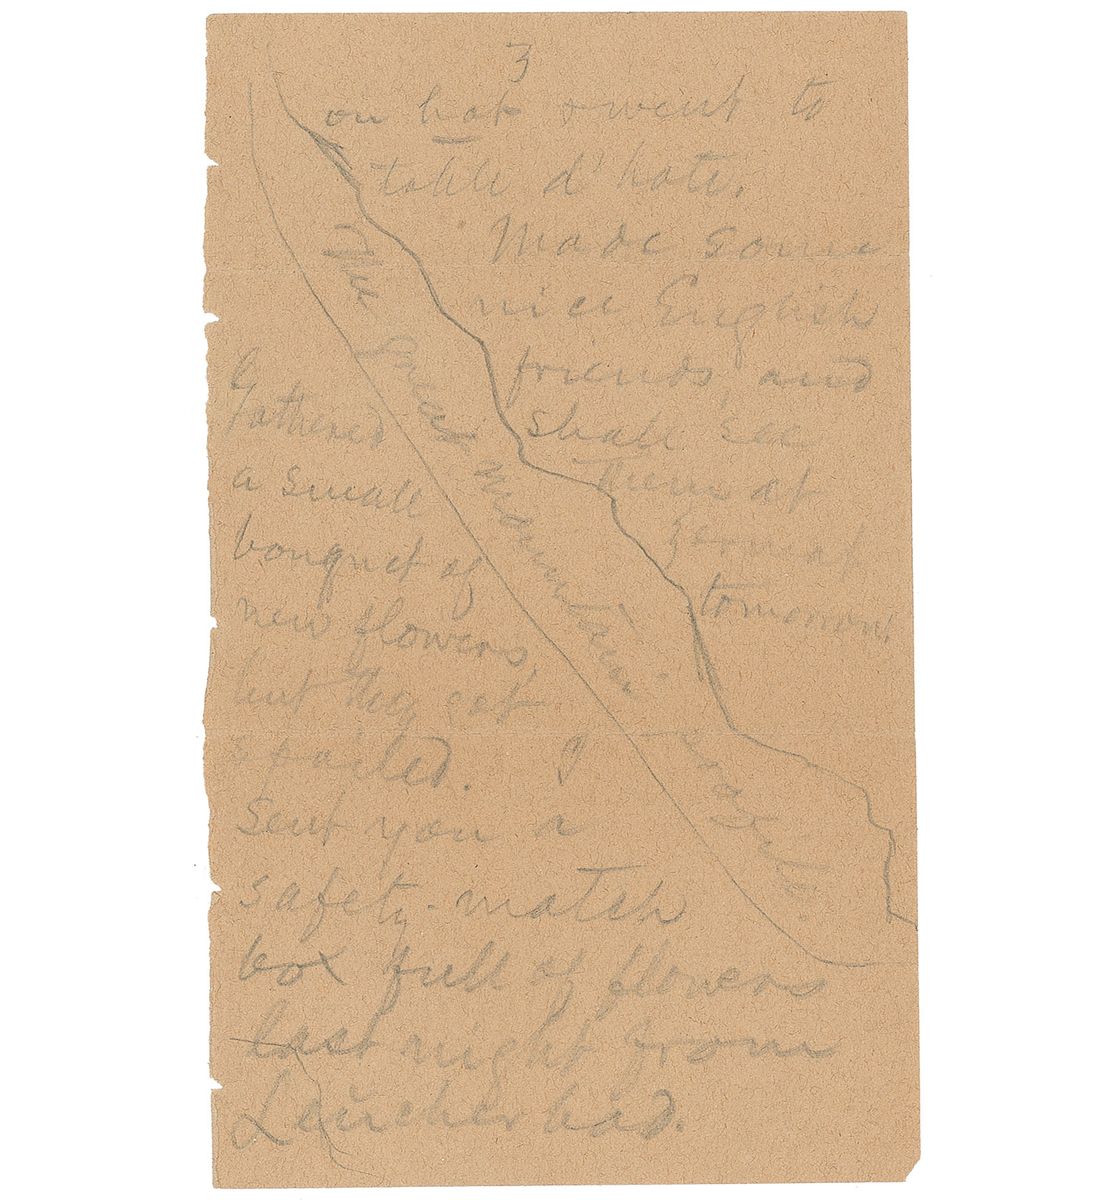 3
on hat & went to
table d'hote.
Made some
nice English
friends, and
shall see
them at
Zermat
tomorrow.
The Great Mountain
Gathered
a small
bouquet of
new flowers
but they get
spoiled. I
sent you a
safety-match
box full of flowers
last night from
Leucherbad.